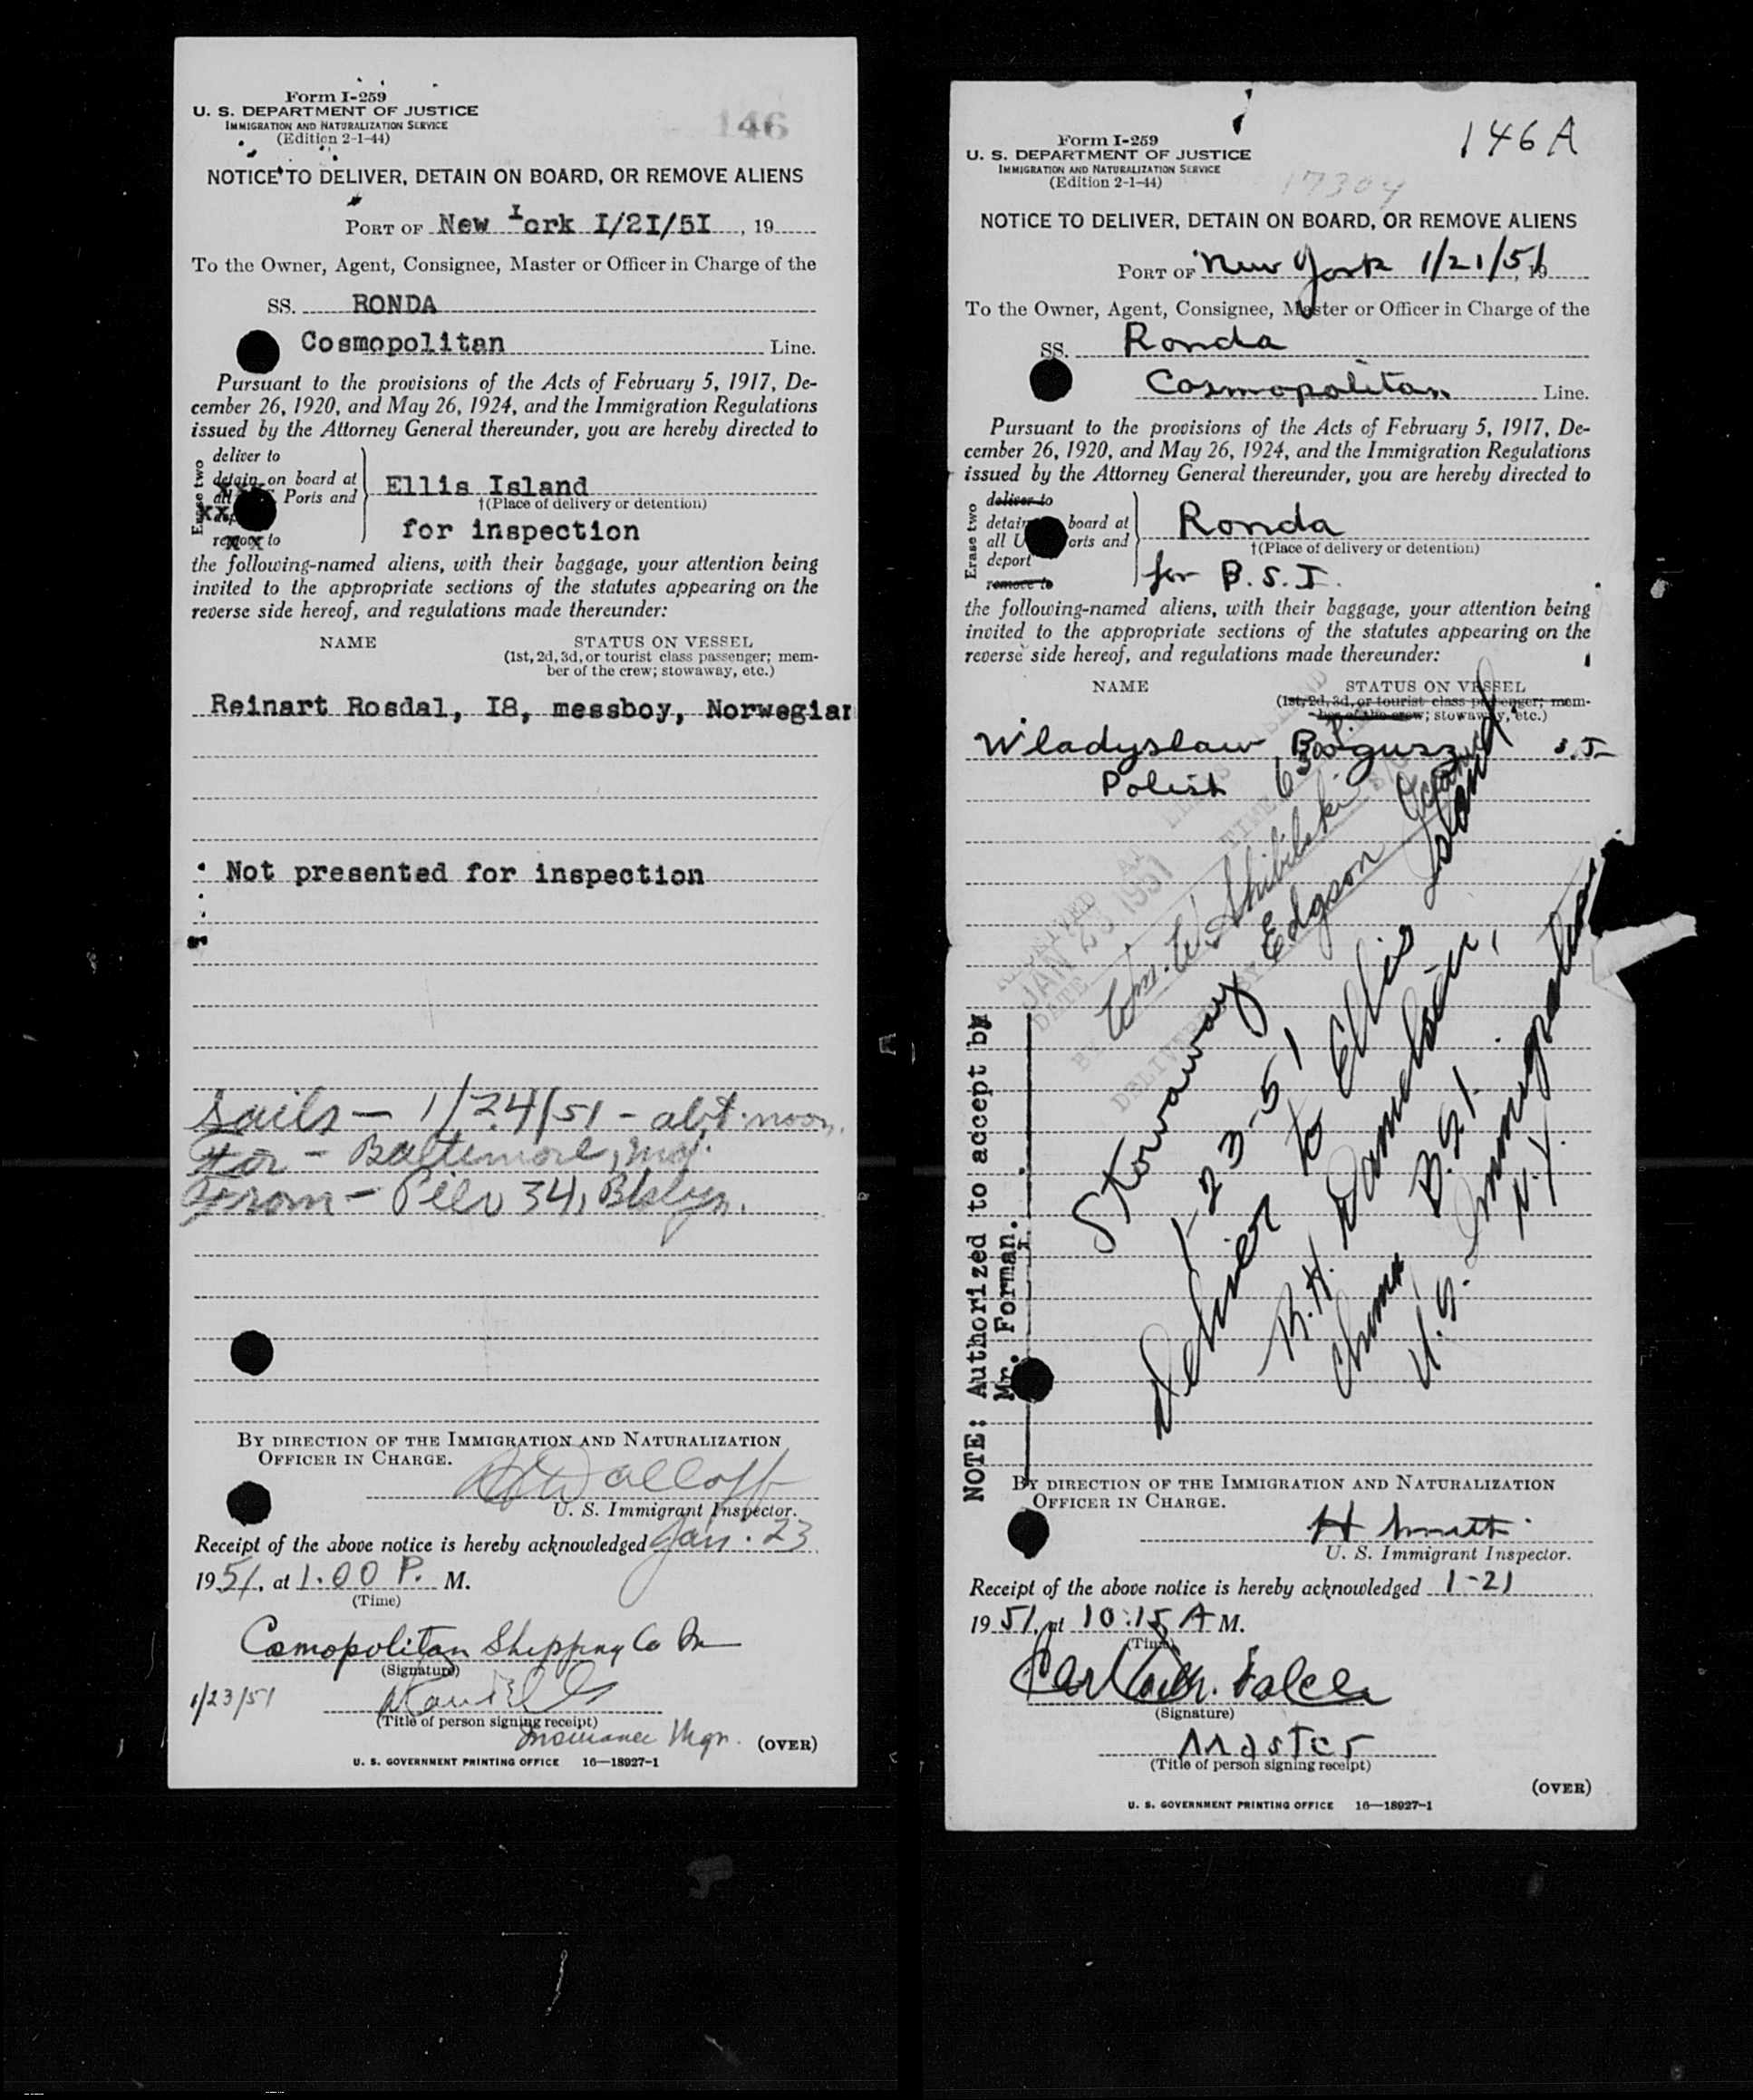 Form I-259
U. S. DEPARTMENT OF JUSTICE
IMMIGRATION AND NATURALIZATION SERVICE
(Edition 2-1-44)
146
NOTICE TO DELIVER, DETAIN ON BOARD, OR REMOVE ALIENS
PORT OF New York I/2I/5I, 19
To the Owner, Agent, Consignee, Master or Officer in Charge of the
SS. RONDA
Cosmopolitan Line.
Pursuant to the provisions of the Acts of February 5, 1917, De-
cember 26, 1920, and May 26, 1924, and the Immigration Regulations
issued by the Attorney General thereunder, you are hereby directed to
Erase two
deliver to
detain on board at
all Ports and
remove to
Ellis Island
†(Place of delivery or detention)
for inspection
the following-named aliens, with their baggage, your attention being
invited to the appropriate sections of the statutes appearing on the
reverse side hereof, and regulations made thereunder:
NAME STATUS ON VESSEL
(1st, 2d, 3d, or tourist class passenger; mem-
ber of the crew; stowaway, etc.)
Reinart Rosdal, I8, messboy, Norwegian
Not presented for inspection
Sails — 1/24/51 - abt. noon.
For - Baltimore, Md.
From - Pier 34, Bklyn.
BY DIRECTION OF THE IMMIGRATION AND NATURALIZATION
OFFICER IN CHARGE.
U. S. Immigrant Inspector.
Receipt of the above notice is hereby acknowledged Jan. 23
1951, at 1.00 P. M.
(Time)
Cosmopolitan Shipping Co Inc
(Signature)
1/23/51
(Title of person signing receipt)
Insurance Mgr.
(OVER)
U. S. GOVERNMENT PRINTING OFFICE 16—18927-1
Form I-259
U. S. DEPARTMENT OF JUSTICE
IMMIGRATION AND NATURALIZATION SERVICE
(Edition 2-1-44)
146 A
17304
NOTICE TO DELIVER, DETAIN ON BOARD, OR REMOVE ALIENS
PORT OF New York 1/21/51, 19
To the Owner, Agent, Consignee, Master or Officer in Charge of the
SS. Ronda
Cosmopolitan Line.
Pursuant to the provisions of the Acts of February 5, 1917, De-
cember 26, 1920, and May 26, 1924, and the Immigration Regulations
issued by the Attorney General thereunder, you are hereby directed to
Erase two
deliver to
detain board at
all U orts and
deport
remove to
Ronda
†(Place of delivery or detention)
for B. S. I.
the following-named aliens, with their baggage, your attention being
invited to the appropriate sections of the statutes appearing on the
reverse side hereof, and regulations made thereunder:
NAME STATUS ON VESSEL
(1st, 2d, 3d, or tourist class passenger; mem-
ber of the crew; stowaway, etc.)
Wladyslaw Bogusz
Polish
RECEIVED AT ELLIS ISLAND
JAN 23 1951
DATE TIME
BY
DELIVERED BY
Stowaway
1-23-51
Deliver to Ellis Island
B.S.I.
U.S. Immigration
N.Y.
NOTE: Authorized to accept by
Mr. Forman.
BY DIRECTION OF THE IMMIGRATION AND NATURALIZATION
OFFICER IN CHARGE.
H Smith
U. S. Immigrant Inspector.
Receipt of the above notice is hereby acknowledged 1-21
1951, at 10:15 A M.
(Time)
(Signature)
Master
(Title of person signing receipt)
(OVER)
U. S. GOVERNMENT PRINTING OFFICE 16—18927-1